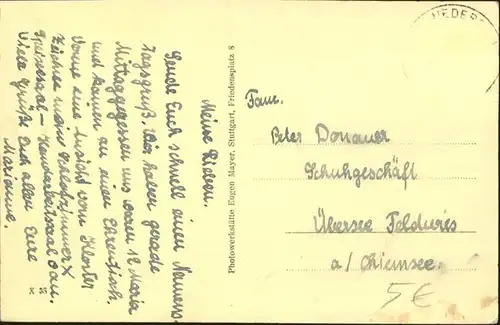 Meine Lieben.
Sende Euch schnell einen Namens-
tagsgruß. Wir haben gerade
Mittaggegessen uns waren 12 Maria
und kamen an einen Ehrentisch.
Vorne eine Ansicht vom Kloster,
Zeichen meine Schlafzimmer X
Speisesaal – Handarbeitssaal o an.
Viele Grüße Euch allen Eure
Marianne.
Photowerkstätte Eugen Mayer, Stuttgart, Friedensplatz 8
Fam.
Peter Donauer
Schuhgeschäft
Übersee Feldwies
a/Chiemsee.
5€